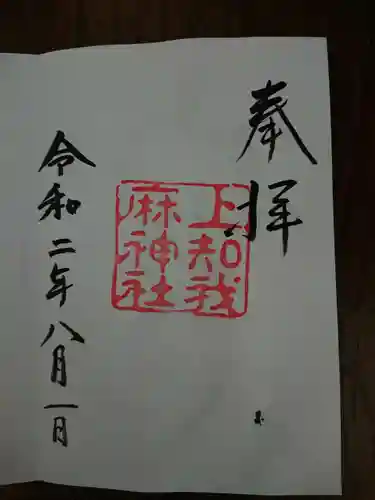 奉拝
上知我
麻神社
令和二年八月一日